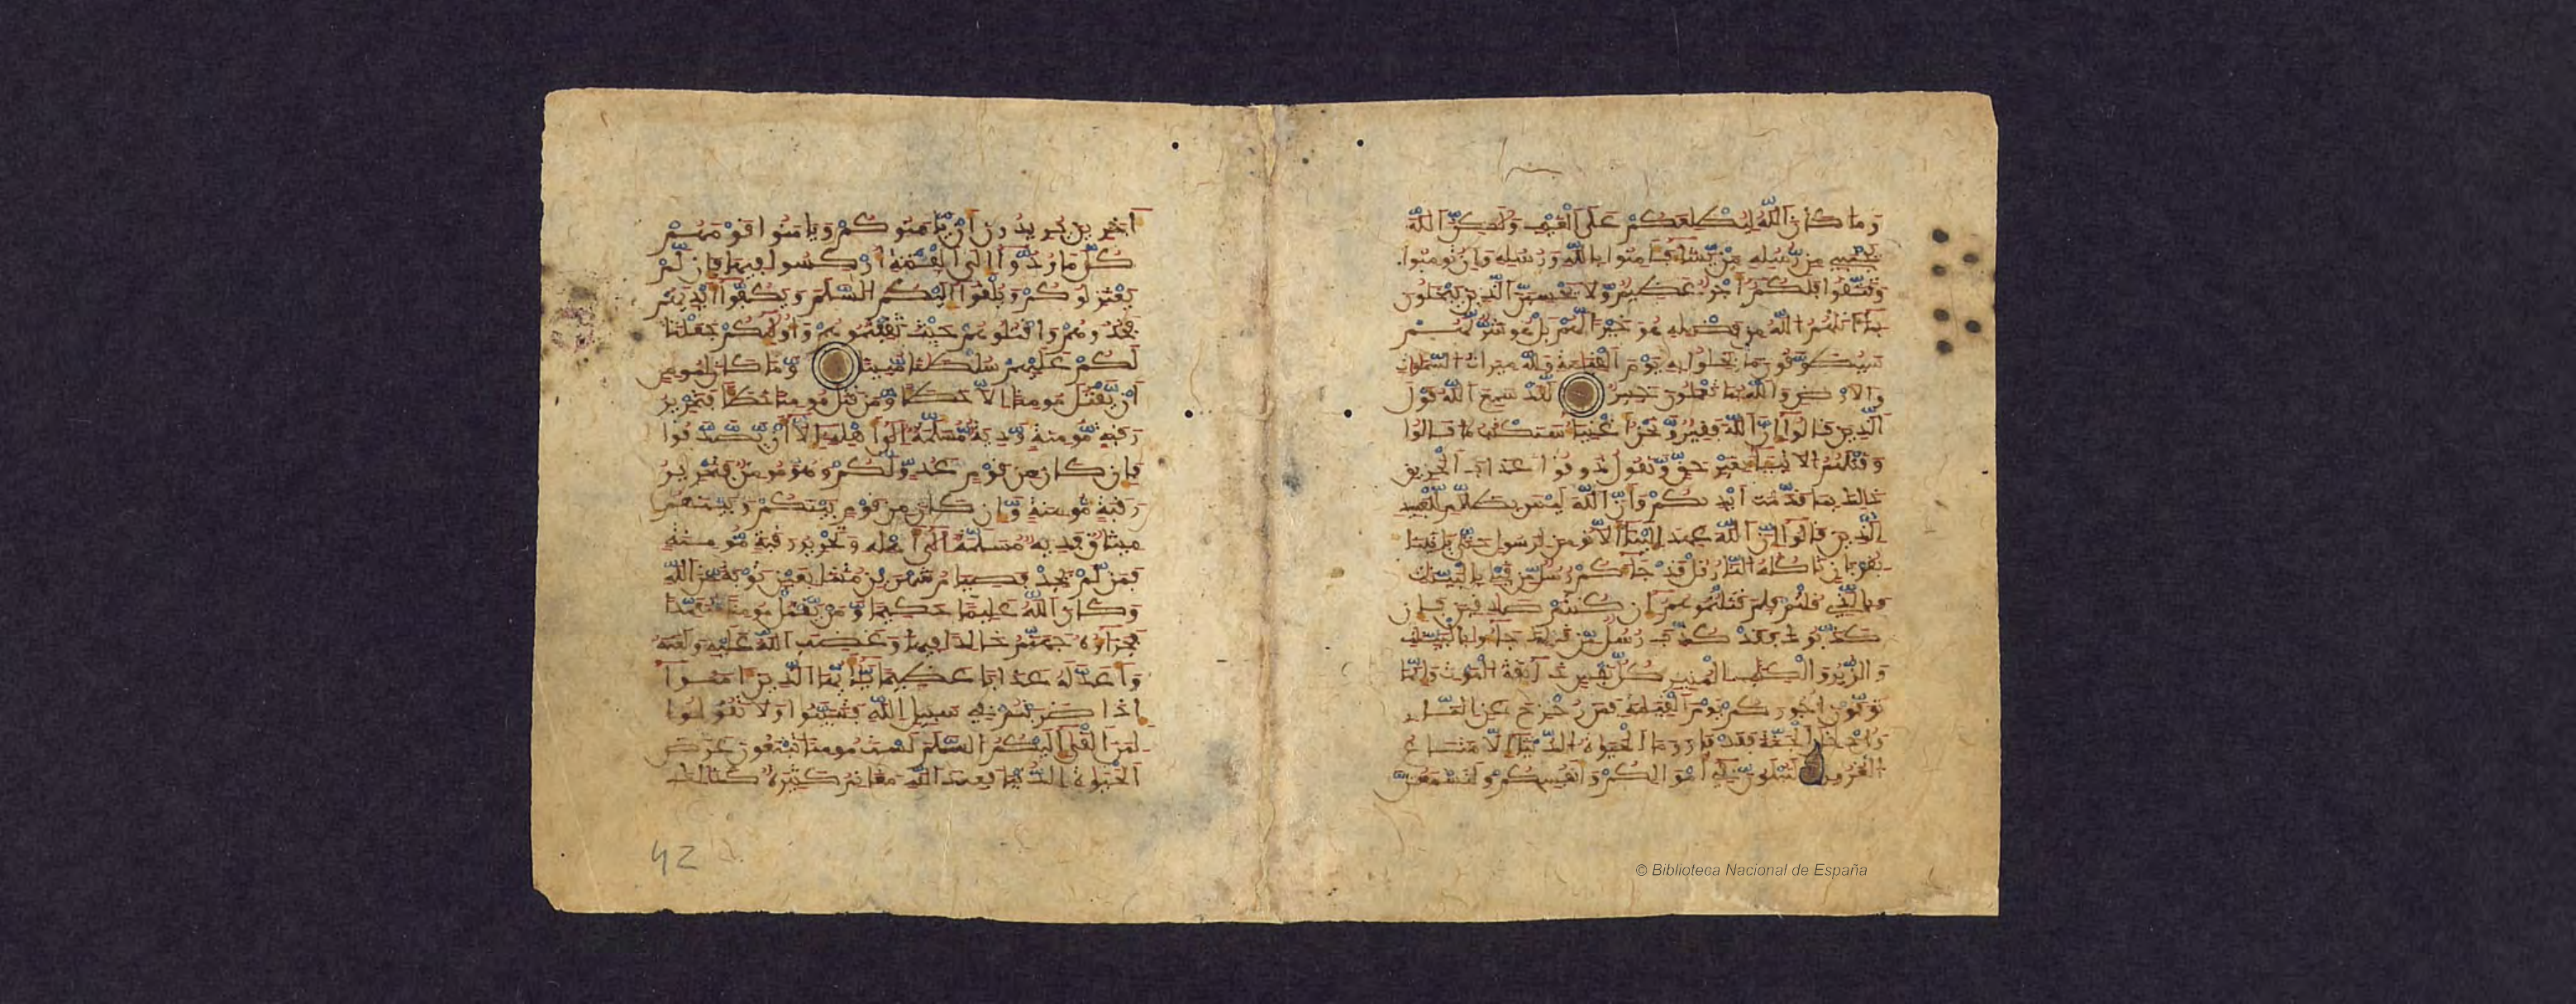 وَمَا كَانَ ٱللَّهُ لِيُطْلِعَكُمْ عَلَى ٱلْغَيْبِ وَلَٰكِنَّ ٱللَّهَ
يَجْتَبِي مِن رُّسُلِهِ مَن يَّشَاءُ فَـَٔامِنُوا بِاللَّهِ وَرُسُلِهِ وَإِن تُومِنُوا
وَتَتَّقُوا فَلَكُمْ أَجْرٌ عَظِيمٌ وَّلَا تَحْسِبَنَّ ٱلَّذِينَ يَبْخَلُونَ
بِمَا ءَاتَىٰهُمُ ٱللَّهُ مِن فَضْلِهِ هُوَ خَيْرًا لَّهُم بَلْ هُوَ شَرٌّ لَّهُمْ
سَيُطَوَّقُونَ مَا بَخِلُوا بِهِ يَوْمَ ٱلْقِيَٰمَةِ وَلِلَّهِ مِيرَٰثُ ٱلسَّمَٰوَٰتِ
وَٱلْأَرْضِ وَٱللَّهُ بِمَا تَعْمَلُونَ خَبِيرٌ لَّقَدْ سَمِعَ ٱللَّهُ قَوْلَ
ٱلَّذِينَ قَالُوا إِنَّ ٱللَّهَ فَقِيرٌ وَّنَحْنُ أَغْنِيَاءُ سَنَكْتُبُ مَا قَالُوا
وَقَتْلَهُمُ ٱلْأَنْبِيَاءَ بِغَيْرِ حَقٍّ وَّنَقُولُ ذُوقُوا عَذَابَ ٱلْحَرِيقِ
ذَٰلِكَ بِمَا قَدَّمَتْ أَيْدِيكُمْ وَأَنَّ ٱللَّهَ لَيْسَ بِظَلَّٰمٍ لِّلْعَبِيدِ
ٱلَّذِينَ قَالُوا إِنَّ ٱللَّهَ عَهِدَ إِلَيْنَا أَلَّا نُومِنَ لِرَسُولٍ حَتَّىٰ يَاتِيَنَا
بِقُرْبَانٍ تَاكُلُهُ ٱلنَّارُ قُلْ قَدْ جَاءَكُمْ رُسُلٌ مِّن قَبْلِي بِالْبَيِّنَٰتِ
وَبِالَّذِي قُلْتُمْ فَلِمَ قَتَلْتُمُوهُمْ إِن كُنتُمْ صَٰدِقِينَ فَإِن
كَذَّبُوكَ فَقَدْ كُذِّبَ رُسُلٌ مِّن قَبْلِكَ جَاءُو بِالْبَيِّنَٰتِ
وَالزُّبُرِ وَالْكِتَٰبِ ٱلْمُنِيرِ كُلُّ نَفْسٍ ذَائِقَةُ ٱلْمَوْتِ وَإِنَّمَا
تُوَفَّوْنَ أُجُورَكُمْ يَوْمَ ٱلْقِيَٰمَةِ فَمَن زُحْزِحَ عَنِ ٱلنَّارِ
وَأُدْخِلَ ٱلْجَنَّةَ فَقَدْ فَازَ وَمَا ٱلْحَيَوٰةُ ٱلدُّنْيَا إِلَّا مَتَٰعُ
ٱلْغُرُورِ لَتُبْلَوُنَّ فِي أَمْوَالِكُمْ وَأَنفُسِكُمْ وَلَتَسْمَعُنَّ
ءَاخَرِينَ يُرِيدُونَ أَن يَّامَنُوكُمْ وَيَامَنُوا قَوْمَهُمْ
كُلَّ مَا رُدُّوا إِلَى ٱلْفِتْنَةِ أُرْكِسُوا فِيهَا فَإِن لَّمْ
يَعْتَزِلُوكُمْ وَيُلْقُوا إِلَيْكُمُ ٱلسَّلَمَ وَيَكُفُّوا أَيْدِيَهُمْ
فَخُذُوهُمْ وَاقْتُلُوهُمْ حَيْثُ ثَقِفْتُمُوهُمْ وَأُوْلَٰئِكُمْ جَعَلْنَا
لَكُمْ عَلَيْهِمْ سُلْطَٰنًا مُّبِينًا وَّمَا كَانَ لِمُومِنٍ
أَن يَّقْتُلَ مُومِنًا إِلَّا خَطَـًٔا وَّمَن قَتَلَ مُومِنًا خَطَـًٔا فَتَحْرِيرُ
رَقَبَةٍ مُّومِنَةٍ وَّدِيَةٌ مُّسَلَّمَةٌ إِلَىٰ أَهْلِهِ إِلَّا أَن يَّصَّدَّقُوا
فَإِن كَانَ مِن قَوْمٍ عَدُوٍّ لَّكُمْ وَهُوَ مُومِنٌ فَتَحْرِيرُ
رَقَبَةٍ مُّومِنَةٍ وَّإِن كَانَ مِن قَوْمٍ بَيْنَكُمْ وَبَيْنَهُم
مِّيثَٰقٌ فَدِيَةٌ مُّسَلَّمَةٌ إِلَىٰ أَهْلِهِ وَتَحْرِيرُ رَقَبَةٍ مُّومِنَةٍ
فَمَن لَّمْ يَجِدْ فَصِيَامُ شَهْرَيْنِ مُتَتَابِعَيْنِ تَوْبَةً مِّنَ ٱللَّهِ
وَكَانَ ٱللَّهُ عَلِيمًا حَكِيمًا وَّمَن يَّقْتُلْ مُومِنًا مُّتَعَمِّدًا
فَجَزَاؤُهُ جَهَنَّمُ خَٰلِدًا فِيهَا وَغَضِبَ ٱللَّهُ عَلَيْهِ وَلَعَنَهُ
وَأَعَدَّ لَهُ عَذَابًا عَظِيمًا يَٰأَيُّهَا ٱلَّذِينَ ءَامَنُوا
إِذَا ضَرَبْتُمْ فِي سَبِيلِ ٱللَّهِ فَتَبَيَّنُوا وَلَا تَقُولُوا
لِمَنْ أَلْقَىٰ إِلَيْكُمُ ٱلسَّلَمَ لَسْتَ مُومِنًا تَبْتَغُونَ عَرَضَ
ٱلْحَيَوٰةِ ٱلدُّنْيَا فَعِندَ ٱللَّهِ مَغَانِمُ كَثِيرَةٌ كَذَٰلِكَ
42
© Biblioteca Nacional de España